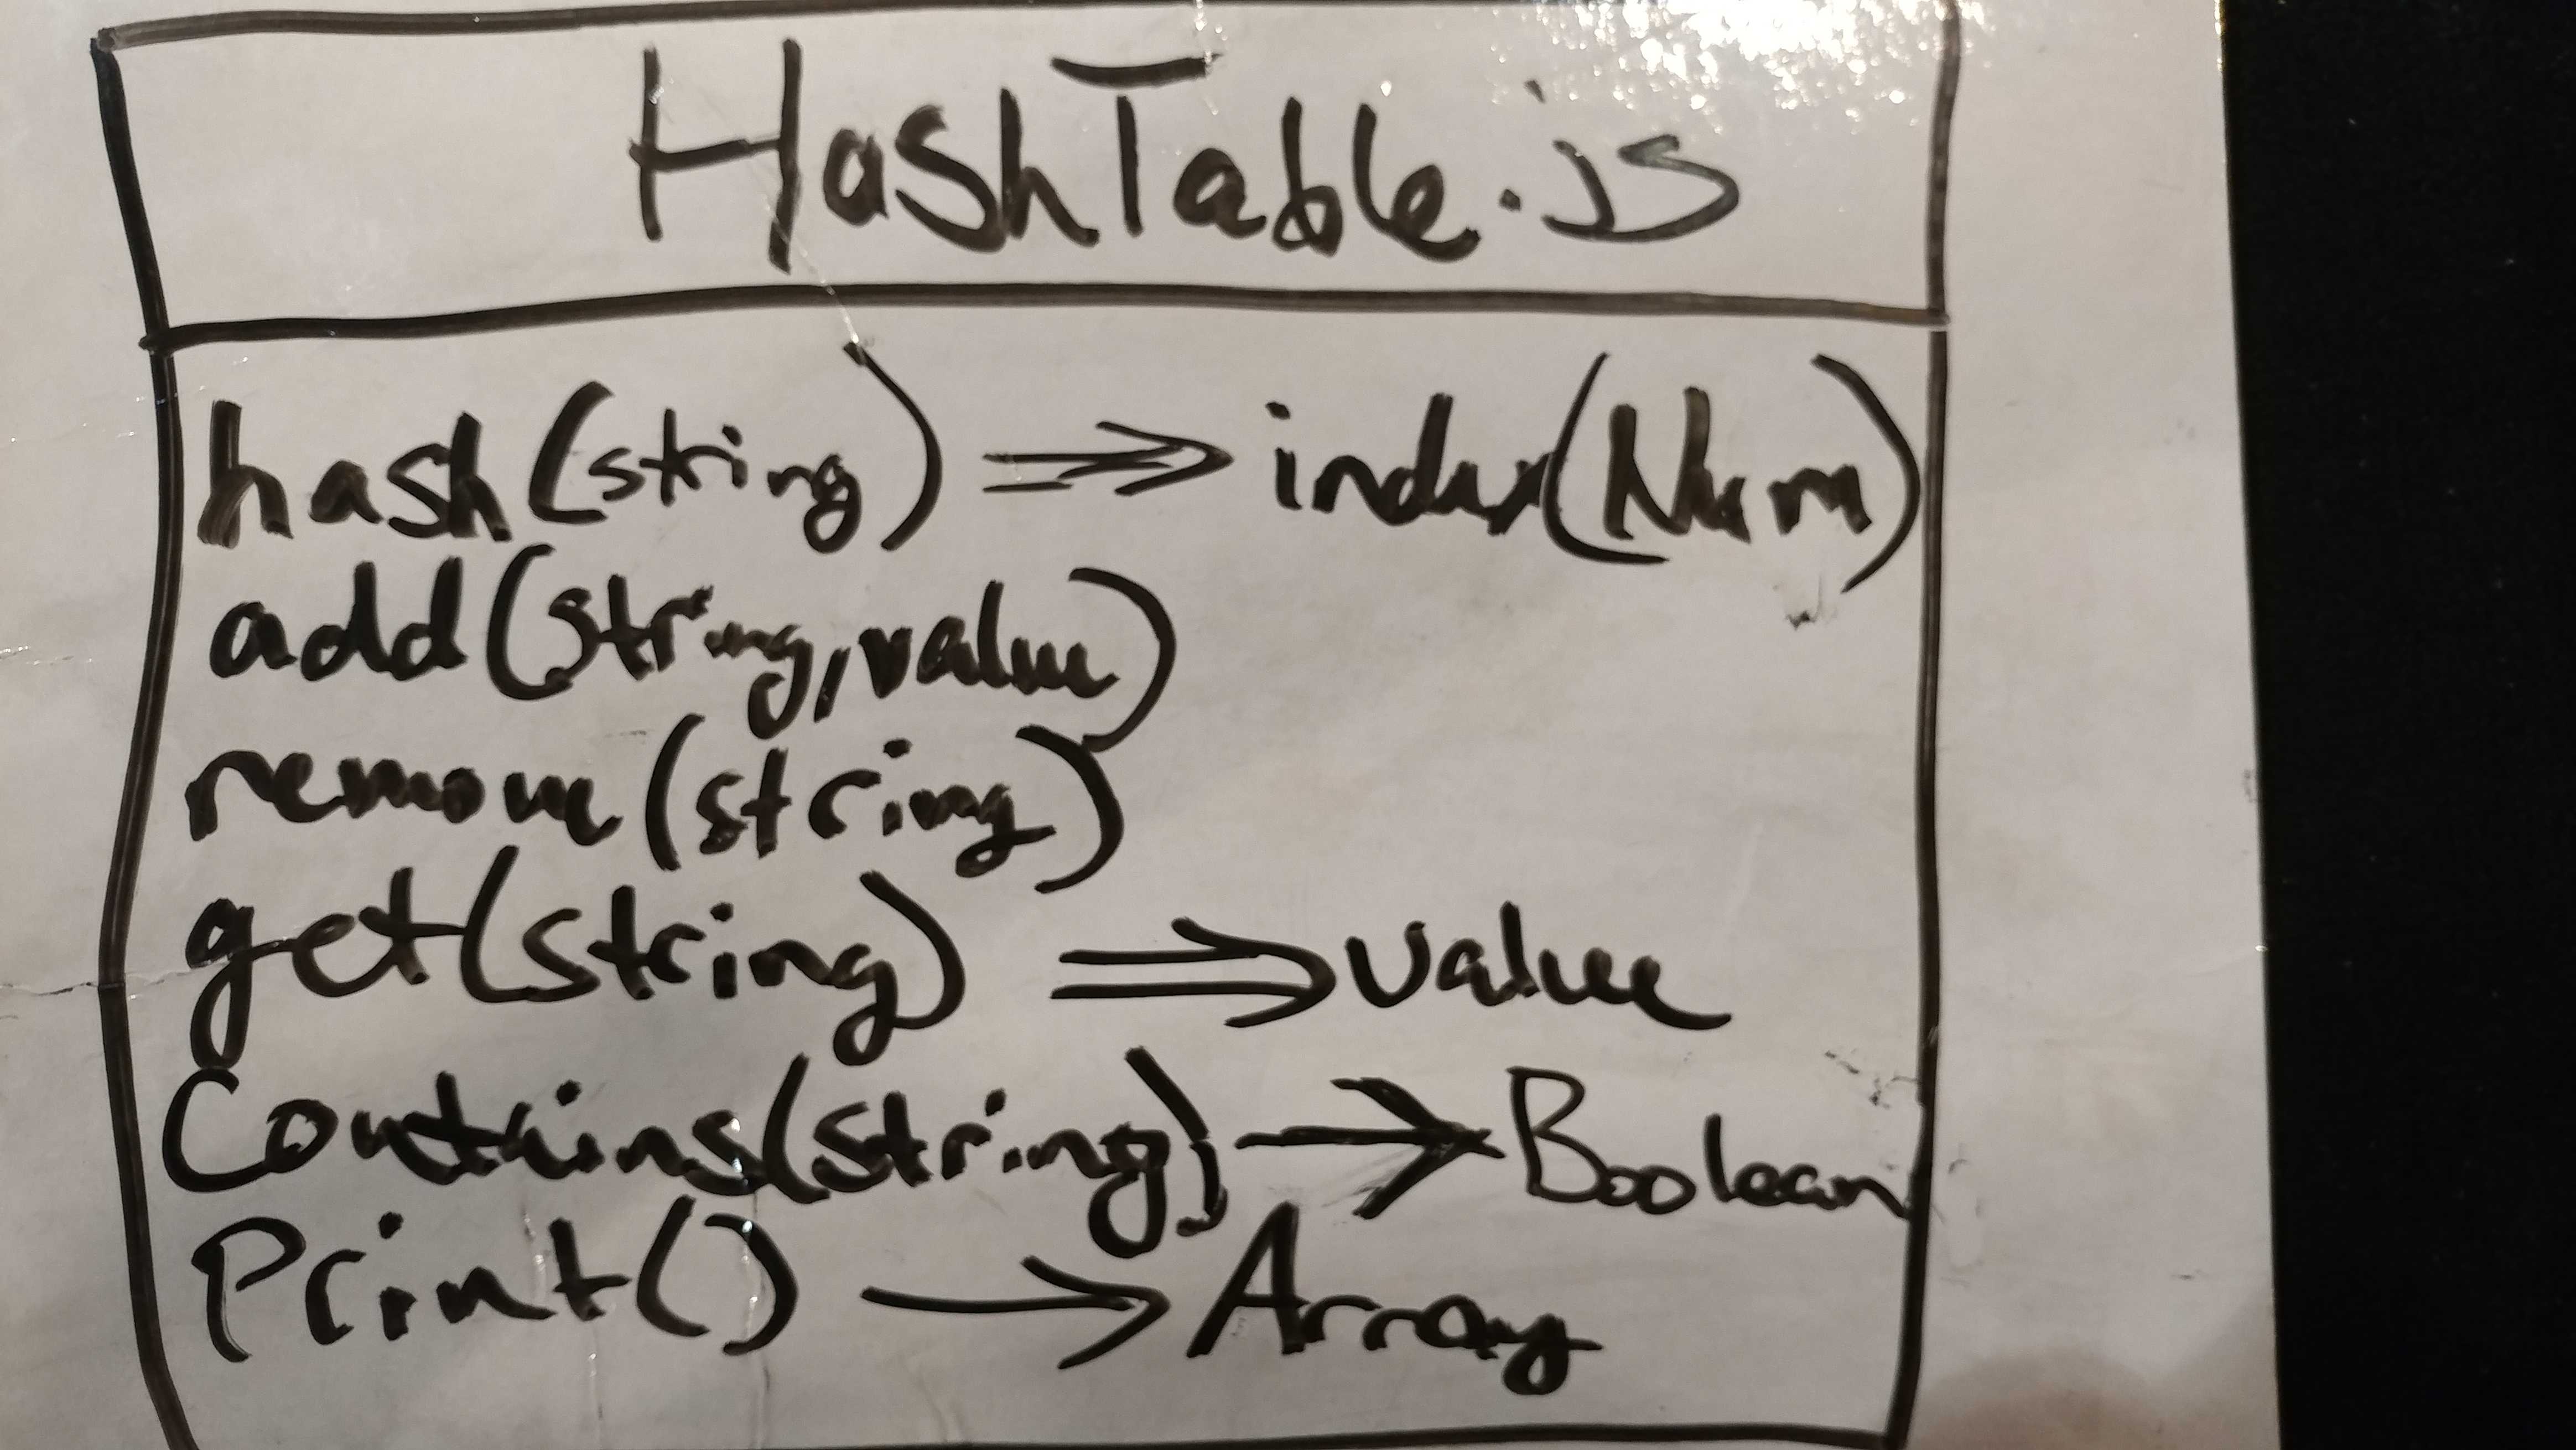 HashTable.js
hash(string) => index(Num)
add(string, value)
remove(string)
get(string) => value
Contains(string) → Boolean
Print() → Array